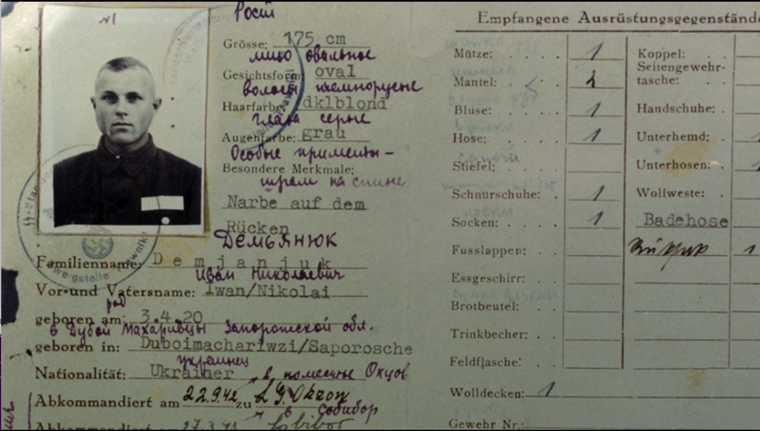 №1
Росії
Grösse: 175 cm
лицо овальное
Gesichtsform: oval
волосы темнорусые
Haarfarbe: dklblond
глаза серые
Augenfarbe: grau
Особые приметы-
Besondere Merkmale:
шрам на спине
Narbe auf dem
Rücken
ДЕМЬЯНЮК
Familienname: Demjanjuk
Иван Николаевич
Vor-und Vatersname: Iwan/Nikolai
род
geboren am: 3.4.20
в Дубой Махаривцы Запорожской обл.
geboren in: Duboimachariwzi/Saporosche
украинец
Nationalität: Ukrainer
в поместье Окцов
Abkommandiert am 22.9.42 zu L.G. Okzow
в Собибор
Abkommandiert am 27.3.43 Sobibor
Empfangene Ausrüstungsgegenstände
Mütze: 1
Mantel: 1
Bluse: 1
Hose: 1
Stiefel:
Schnürschuhe: 1
Socken: 1
Fusslappen:
Essgeschirr:
Brotbeutel:
Trinkbecher:
Feldflasche:
Wolldecken: 1
Gewehr Nr.:
Koppel:
Seitengewehr-
tasche:
Handschuhe:
Unterhemd:
Unterhosen:
Wollweste:
Badehose
1